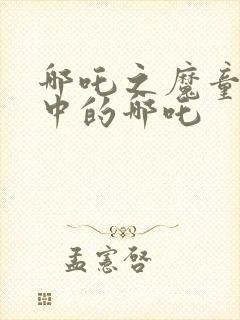 哪吒之魔童
中的哪吒
孟宪启